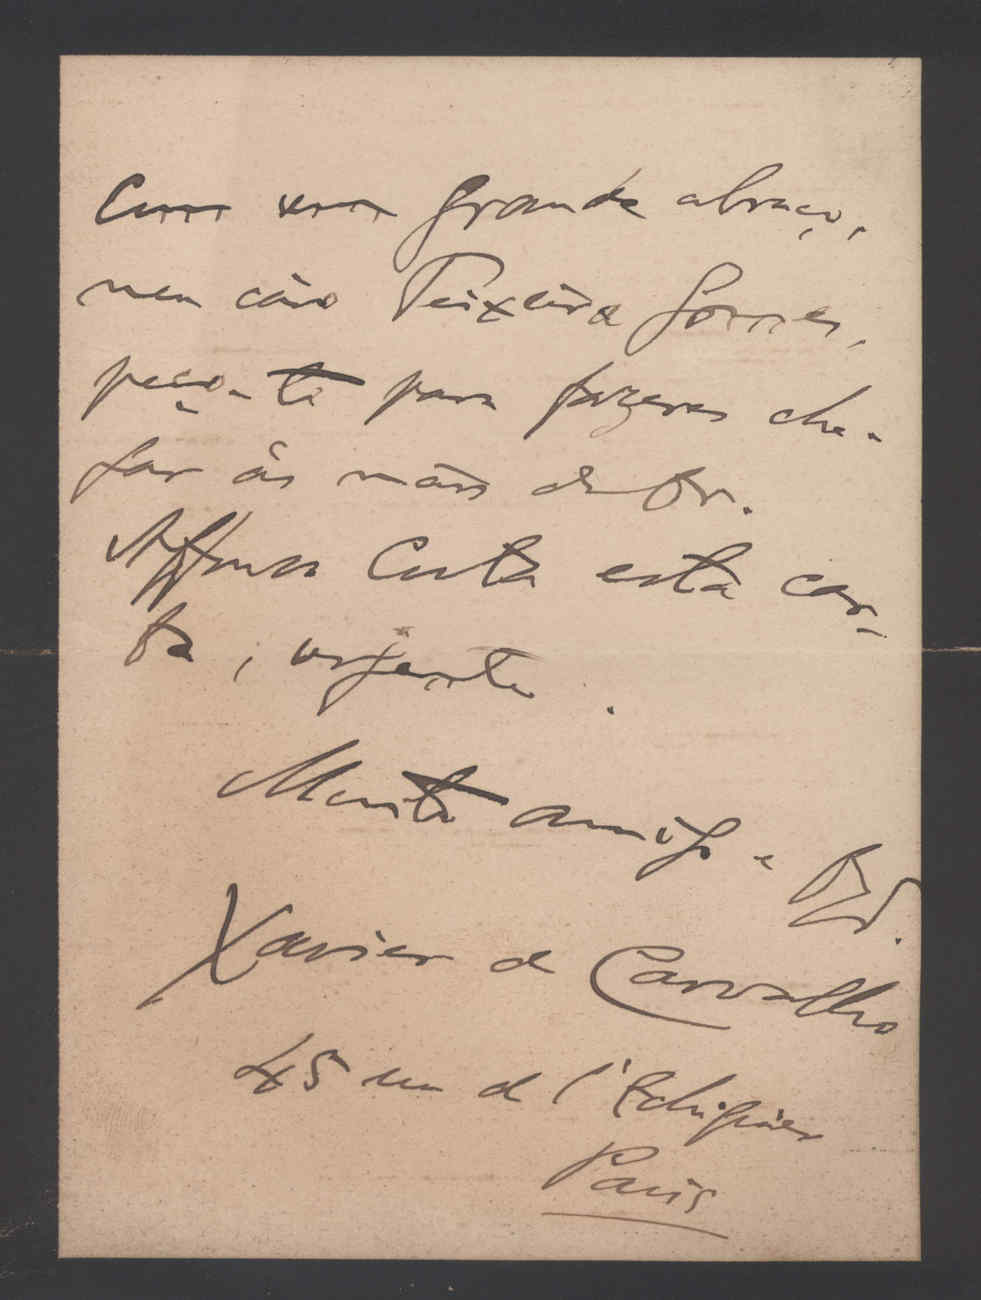 Com um grande abraço,
meu caro Teixeira Gomes,
peço-te para fazeres che-
gar ás mãos do Dr.
Affonso Costa esta car-
ta, urgente.
Muito amigo e
Xavier de Carvalho
45 rue de l'Echiquier
Paris